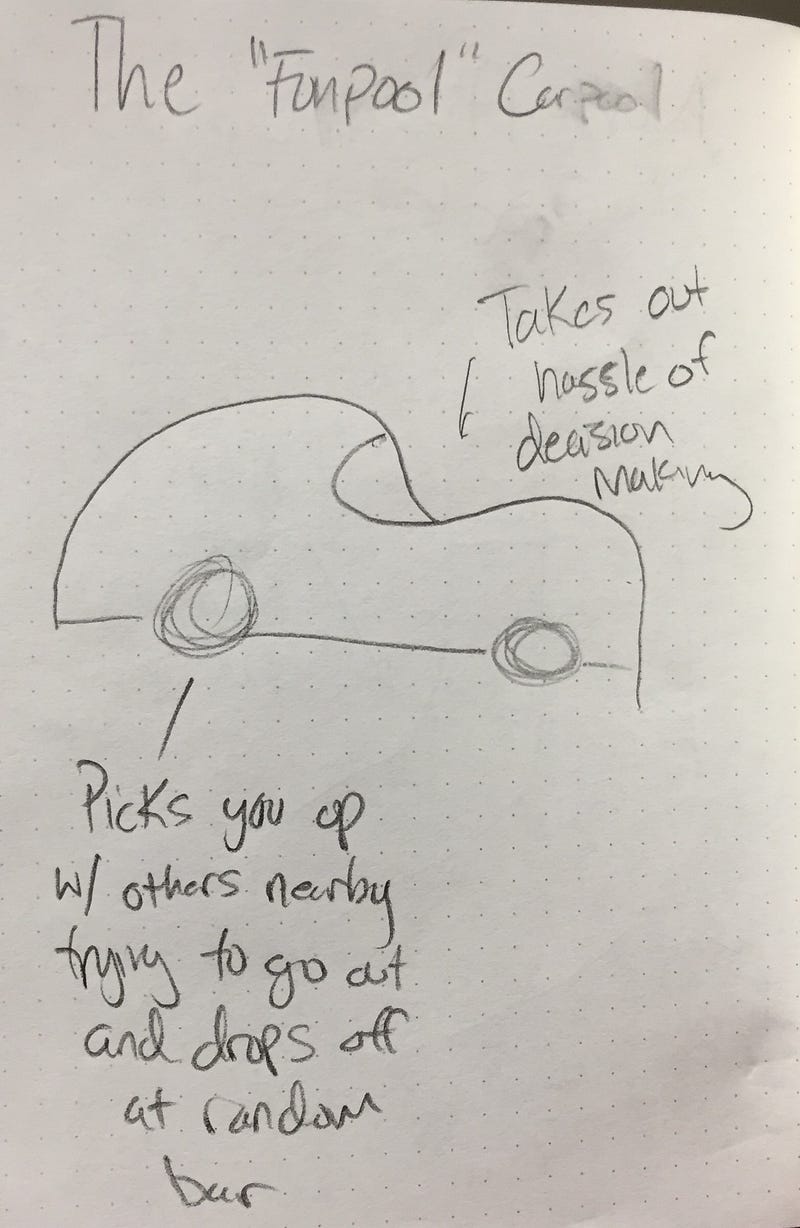 The "Funpool" Carpool
Takes out
hassle of
decision
making
Picks you up
w/ others nearby
trying to go out
and drops off
at random
bar